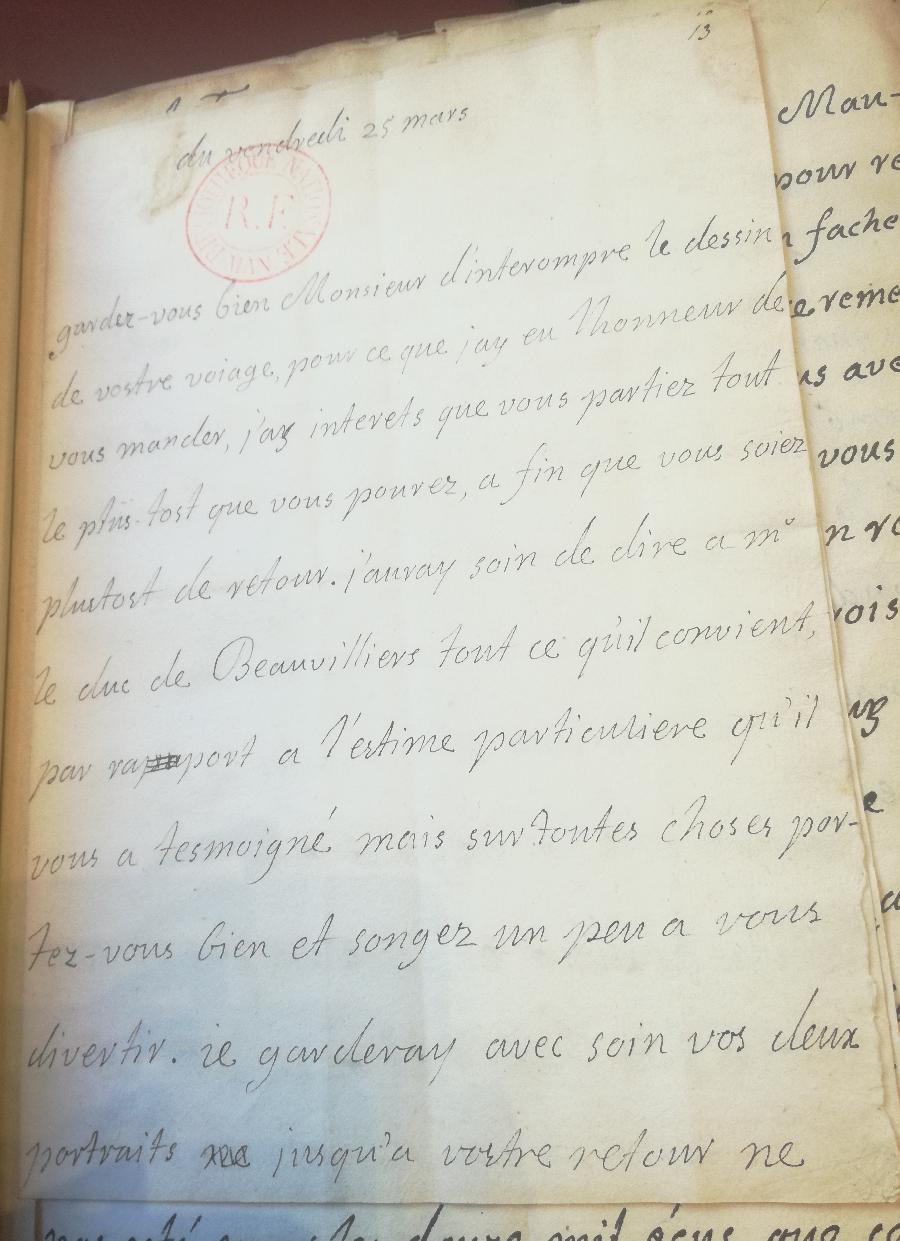 13
du vendredi 25 mars
R.F.
gardez-vous bien Monsieur d'interompre le dessin
de vostre voiage, pour ce que j'ay eu l'honneur de
vous mander, j'ay interets que vous partiez tout
le plus-tost que vous pourez, a fin que vous soiez
plustost de retour. j'auray soin de dire a mr
le duc de Beauvilliers tout ce qu'il convient,
par rapport a l'estime particuliere qu'il
vous a tesmoigné mais surtoutes choses por-
tez-vous bien et songez un peu a vous
divertir. ie garderay avec soin vos deux
portraits jusqu'a vostre retour ne
Mau-
pour re
fache
e reme
us ave
vous
n re
vois